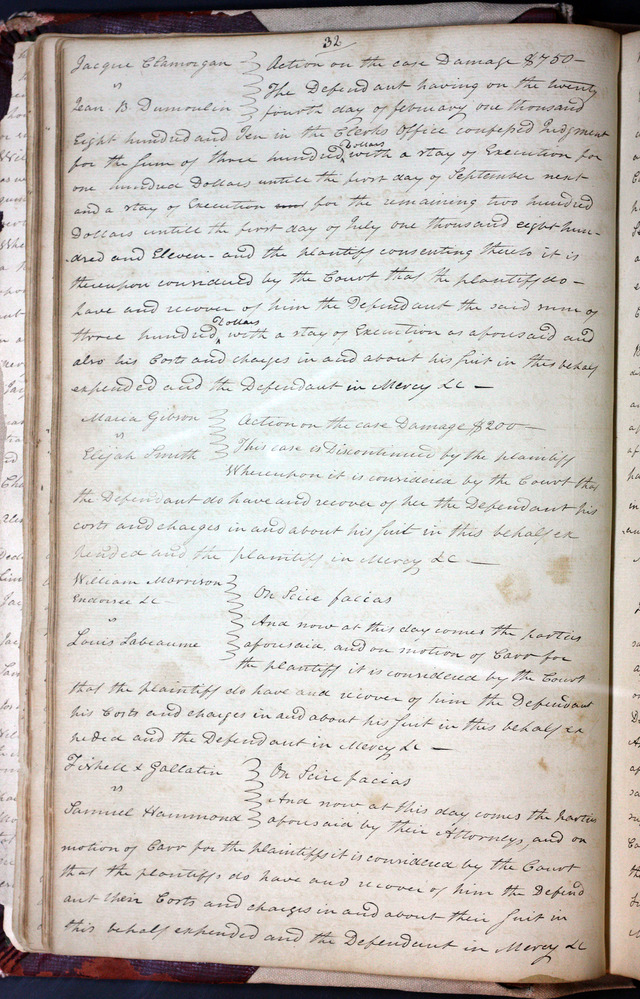 32
Jacque Clamorgan } Action on the case Damage $750—
" The Defendant having on the twenty
Jean B. Dumoulin fourth day of february one thousand
Eight hundred and Ten in the Clerks Office confessed Judgment
for the Sum of three hundred Dollars with a stay of Execution for
one hundred Dollars untill the first day of September next
and a stay of Execution for the remaining two hundred
Dollars untill the first day of July one thousand eight hun-
dred and Eleven - and the plaintiff consenting thereto it is
thereupon considered by the Court that the plaintiff do-
have and recover of him the Defendant the said sum of
three hundred Dollars with a stay of Execution as aforesaid and
also his Costs and charges in and about his suit in this behalf
expended and the Defendant in Mercy &c —
Maria Gibson } Action on the case Damage $200—
vs This case is Discontinued by the plaintiff
Elijah Smith Whereupon it is considered by the Court that
the Defendant do have and recover of her the Defendant his
costs and charges in and about his suit in this behalf ex
pended and the plaintiff in Mercy &c —
William Morrison
Endorsee &c — } On Scire facias
" And now at this day comes the parties
Louis Labeaume aforesaid, and on motion of Carr for
the plaintiff it is considered by the Court
that the plaintiff do have and recover of him the Defendant
his Costs and charges in and about his suit in this behalf ex
pended and the Defendant in Mercy &c —
Tixhell & Gallatin } On Scire facias
vs And now at this day comes the parties
Samuel Hammond aforesaid by their Attorneys, and on
motion of Carr for the plaintiffs it is considered by the Court
that the plaintiffs do have and recover of him the Defend
ant their Costs and charges in and about their suit in
this behalf expended and the Defendant in Mercy &c